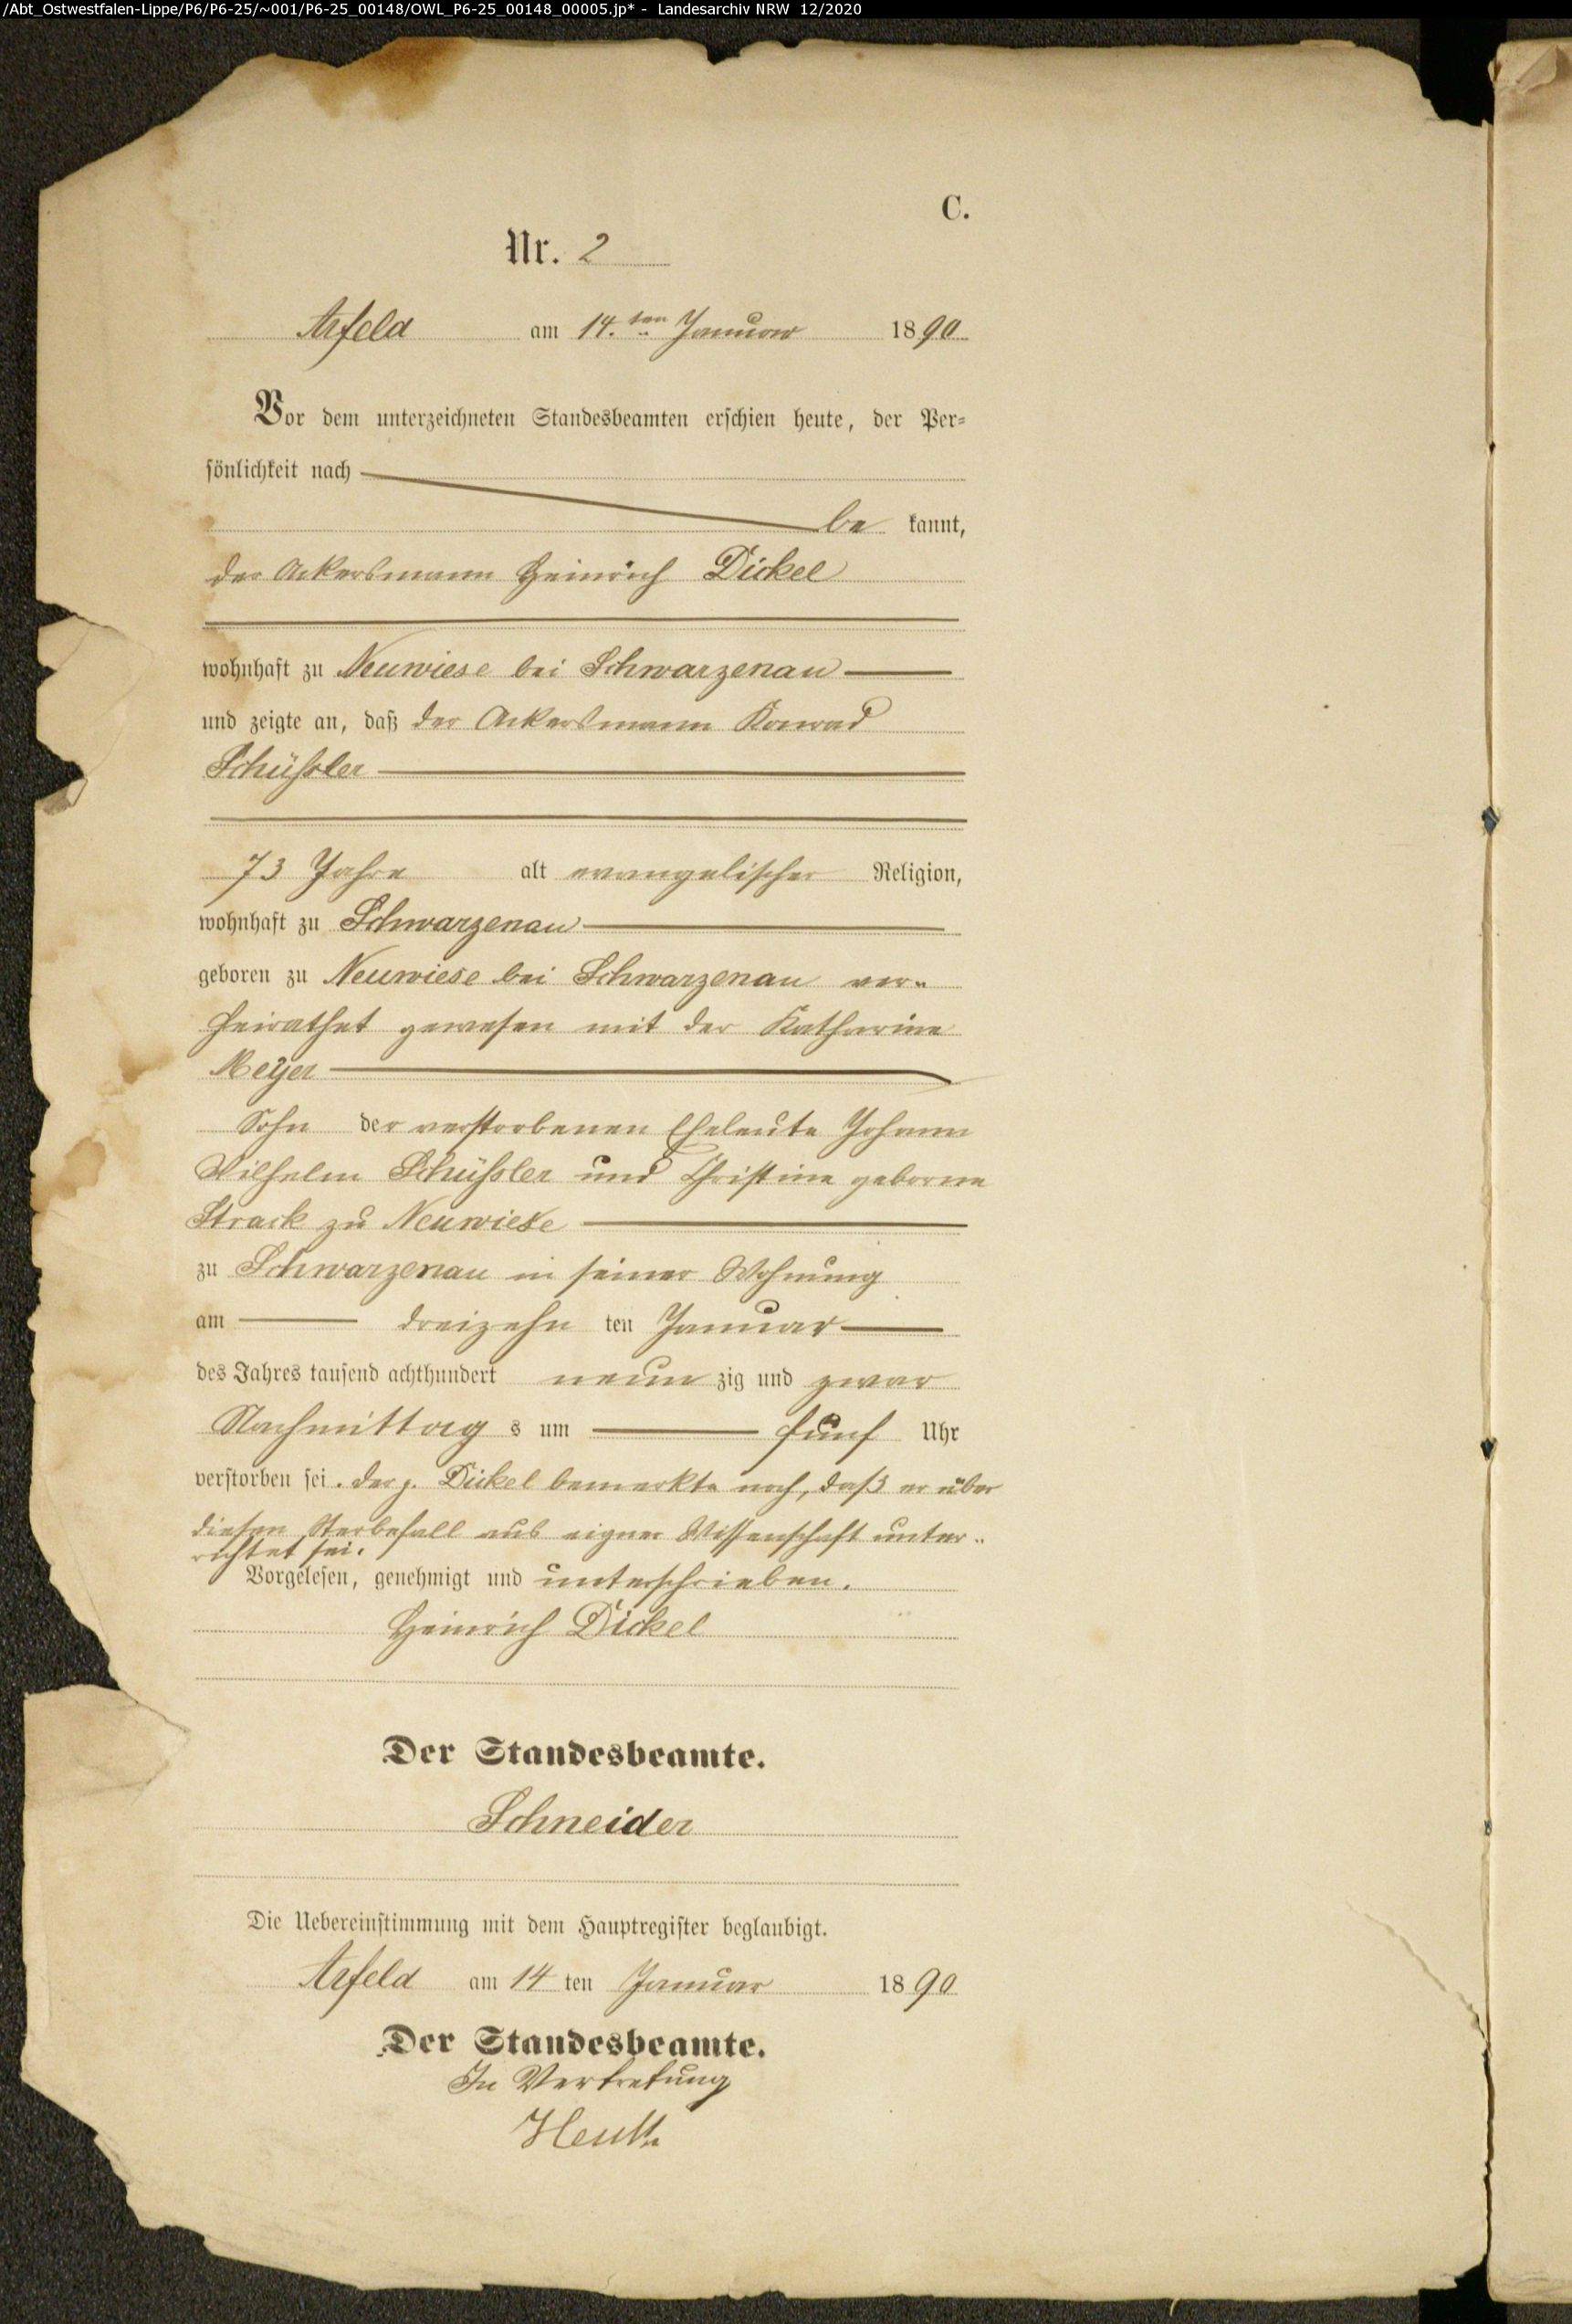 /Abt_Ostwestfalen-Lippe/P6/P6-25/~001/P6-25_00148/OWL_P6-25_00148_00005.jp* - Landesarchiv NRW 12/2020
C.
Nr. 2
Arfeld am 14.ten Januar 1890
Vor dem unterzeichneten Standesbeamten erschien heute, der Per-
sönlichkeit nach
be kannt,
der Ackersmann Heinrich Dickel
wohnhaft zu Neuwiese bei Schwarzenau
und zeigte an, daß der Ackersmann Konrad
Schüßler
73 Jahre alt evangelischer Religion,
wohnhaft zu Schwarzenau
geboren zu Neuwiese bei Schwarzenau ver-
heirathet gewesen mit der Katharine
Meyer
Sohn der verstorbenen Eheleute Johann
Wilhelm Schüßler und Christine geborne
Strack zu Neuwiese
zu Schwarzenau in seiner Wohnung
am dreizehn ten Januar
des Jahres tausend achthundert neun zig und zwar
Nachmittag s um fünf Uhr
verstorben sei. Der p. Dickel bemerkte noch, daß er über
diesen Sterbefall aus eigner Wissenschaft unter-
richtet sei.
Vorgelesen, genehmigt und unterschrieben.
Heinrich Dickel
Der Standesbeamte.
Schneider
Die Uebereinstimmung mit dem Hauptregister beglaubigt.
Arfeld am 14 ten Januar 1890
Der Standesbeamte.
In Vertretung